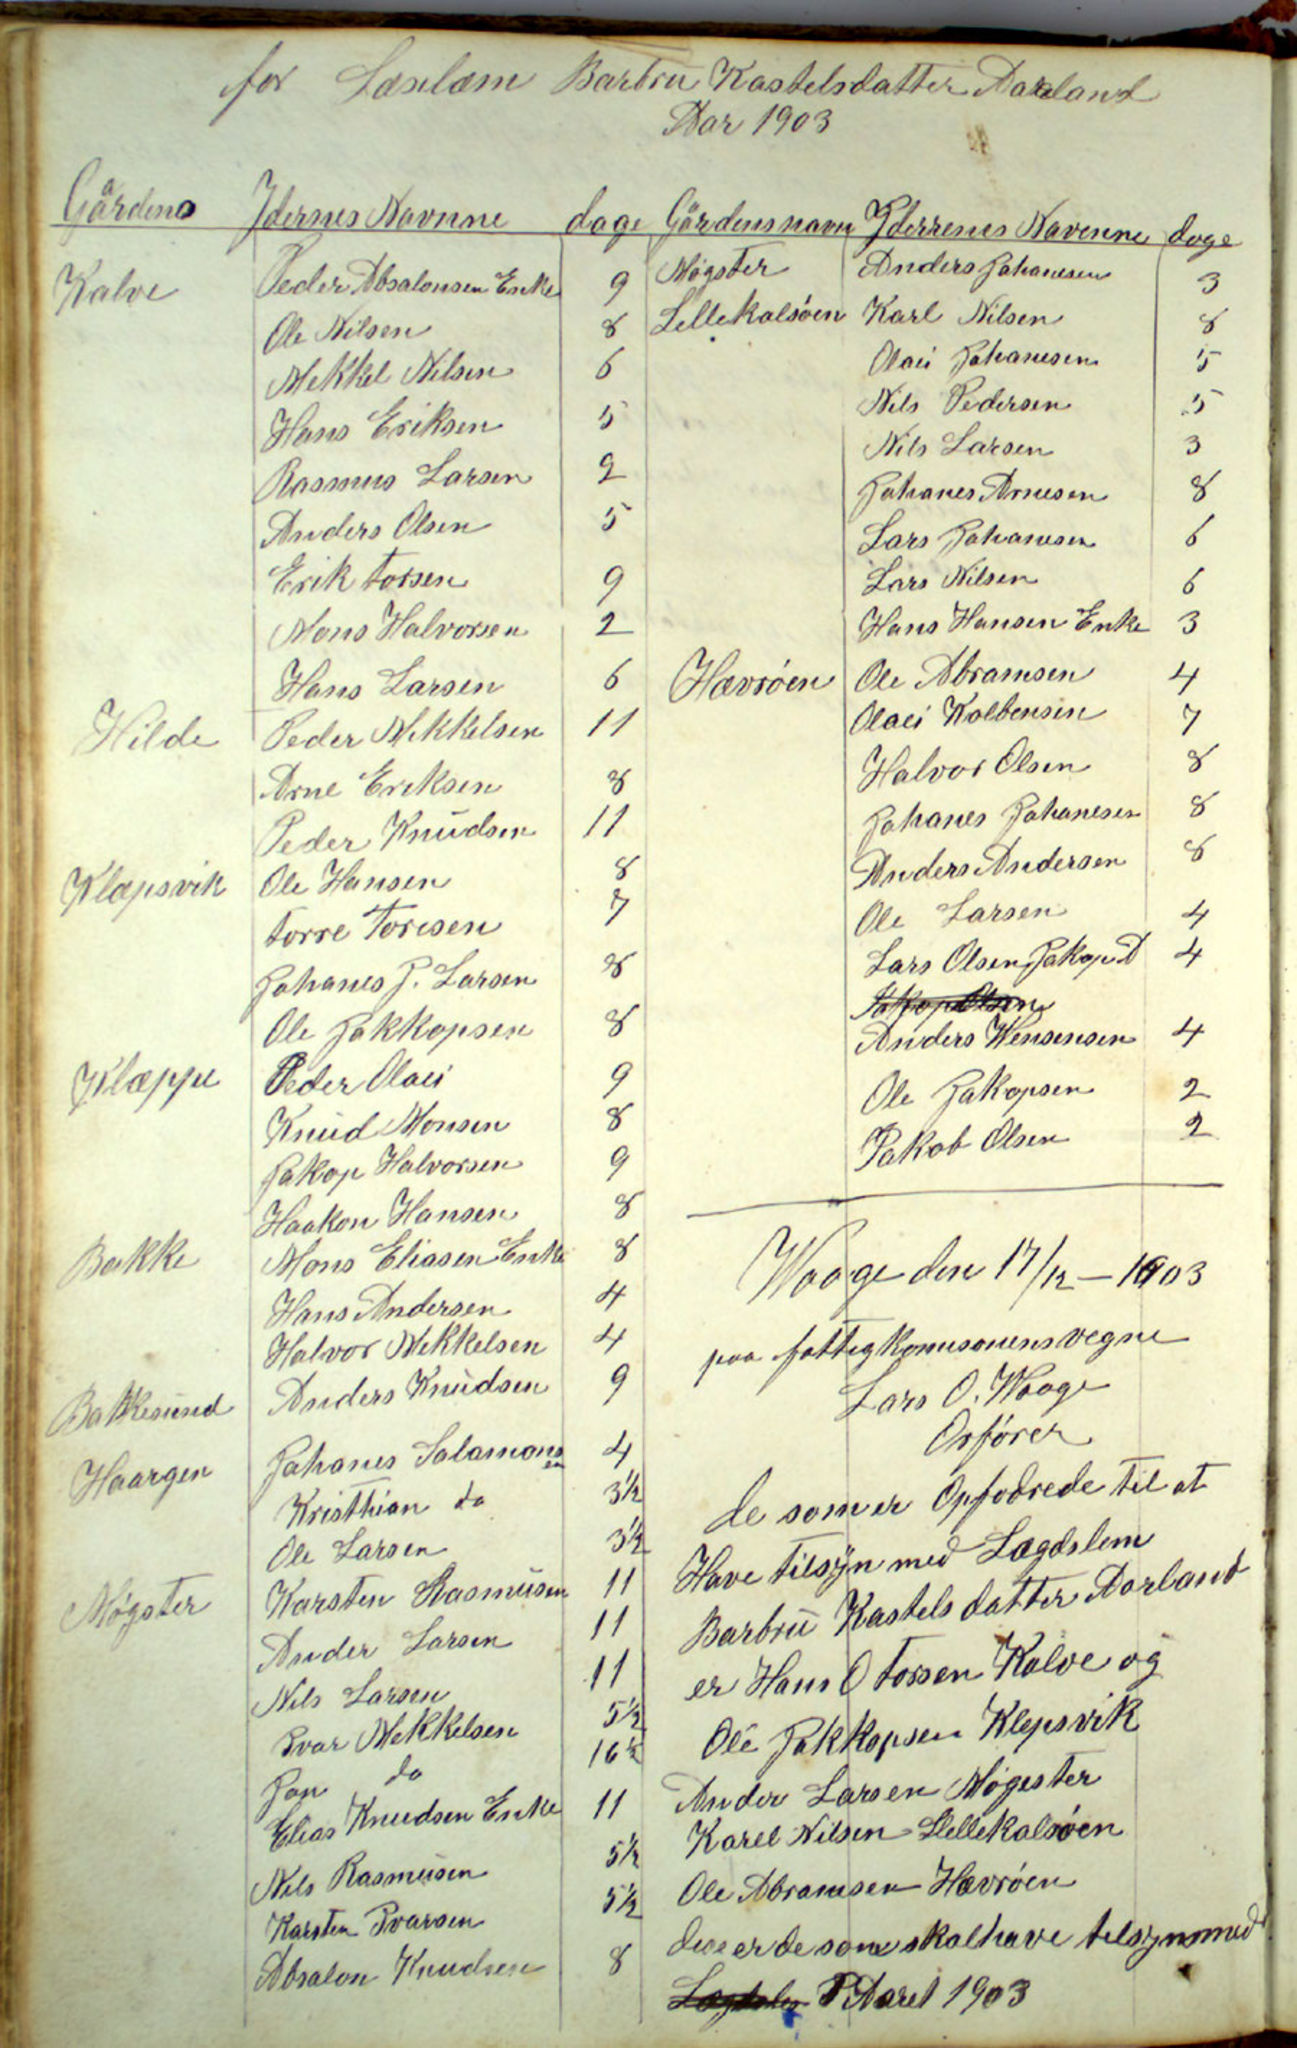 for Læselæm Barbru Kastelsdatter Aarland
Aar 1903
Gårdens Ydernes Navnne dage
Kalve Peder Absalonsen Enke 9
Ole Nilsen 8
Mekkel Nilsen 6
Hans Eriksen 5
Rasmus Larsen 2
Anders Olsen 5
Erik Torsen 9
Mons Halvorsen 2
Hans Larsen 6
Hilde Peder Mekkelsen 11
Arne Eriksen 8
Peder Knudsen 11
Klæpsvik Ole Hansen 8
Torre Toresen 7
Johanes J. Larsen 8
Ole Jakkopsen 8
Klæppe Peder Olai 9
Knud Monsen 8
Jakop Halvorsen 9
Haakon Hansen 8
Bakke Mons Eliasen Enke 8
Hans Andersen 4
Halvor Mekkelsen 4
Bakkesund Anders Knudsen 9
Haargen Johanes Salamonsen 4
Kristhian do 3½
Ole Larsen 3½
Møgster Karsten Rasmusen 11
Ander Larsen 11
Nils Larsen 11
Ivar Mekkelsen 5½
Jon do 16½
Elias Knudsen Enke 11
Nils Rasmusen 5½
Karsten Ivarsen 5½
Absalon Knudsen 8
Gårdensnavn Yderrenes Navenne dage
Møgster Anders Johanesen 3
Lellekalsöen Karl Nilsen 8
Olai Johanesen 5
Nils Pedersen 5
Nils Larsen 3
Johanes Arnesen 8
Lars Johanesen 6
Lars Nilsen 6
Hans Hansen Enke 3
Hævröen Ole Abramsen 4
Olaei Kolbensen 7
Halvor Olsen 8
Johanes Johanesen 8
Anders Andersen 8
Ole Larsen 4
Lars Olsen Jakop D 4
Jakop Olsen
Anders Wensensen 4
Ole Jakopsen 2
Jakob Olsen 2
Waage den 17/12 – 1903
paa fattigkomisonens vegne
Lars O. Waage
Orförer
de som er Opfodrede til at
Have tilsyn med Lægdslem
Barbru Kastels datter Aarland
er Hans O Torsen Kalve og
Ole Jakkopsen Klepsvik
Ander Larsen Møgester
Karel Nilsen Lellekalsöen
Ole Abramsen Hævröen
dese er de som skal have tilsyn med
I Aaret 1903